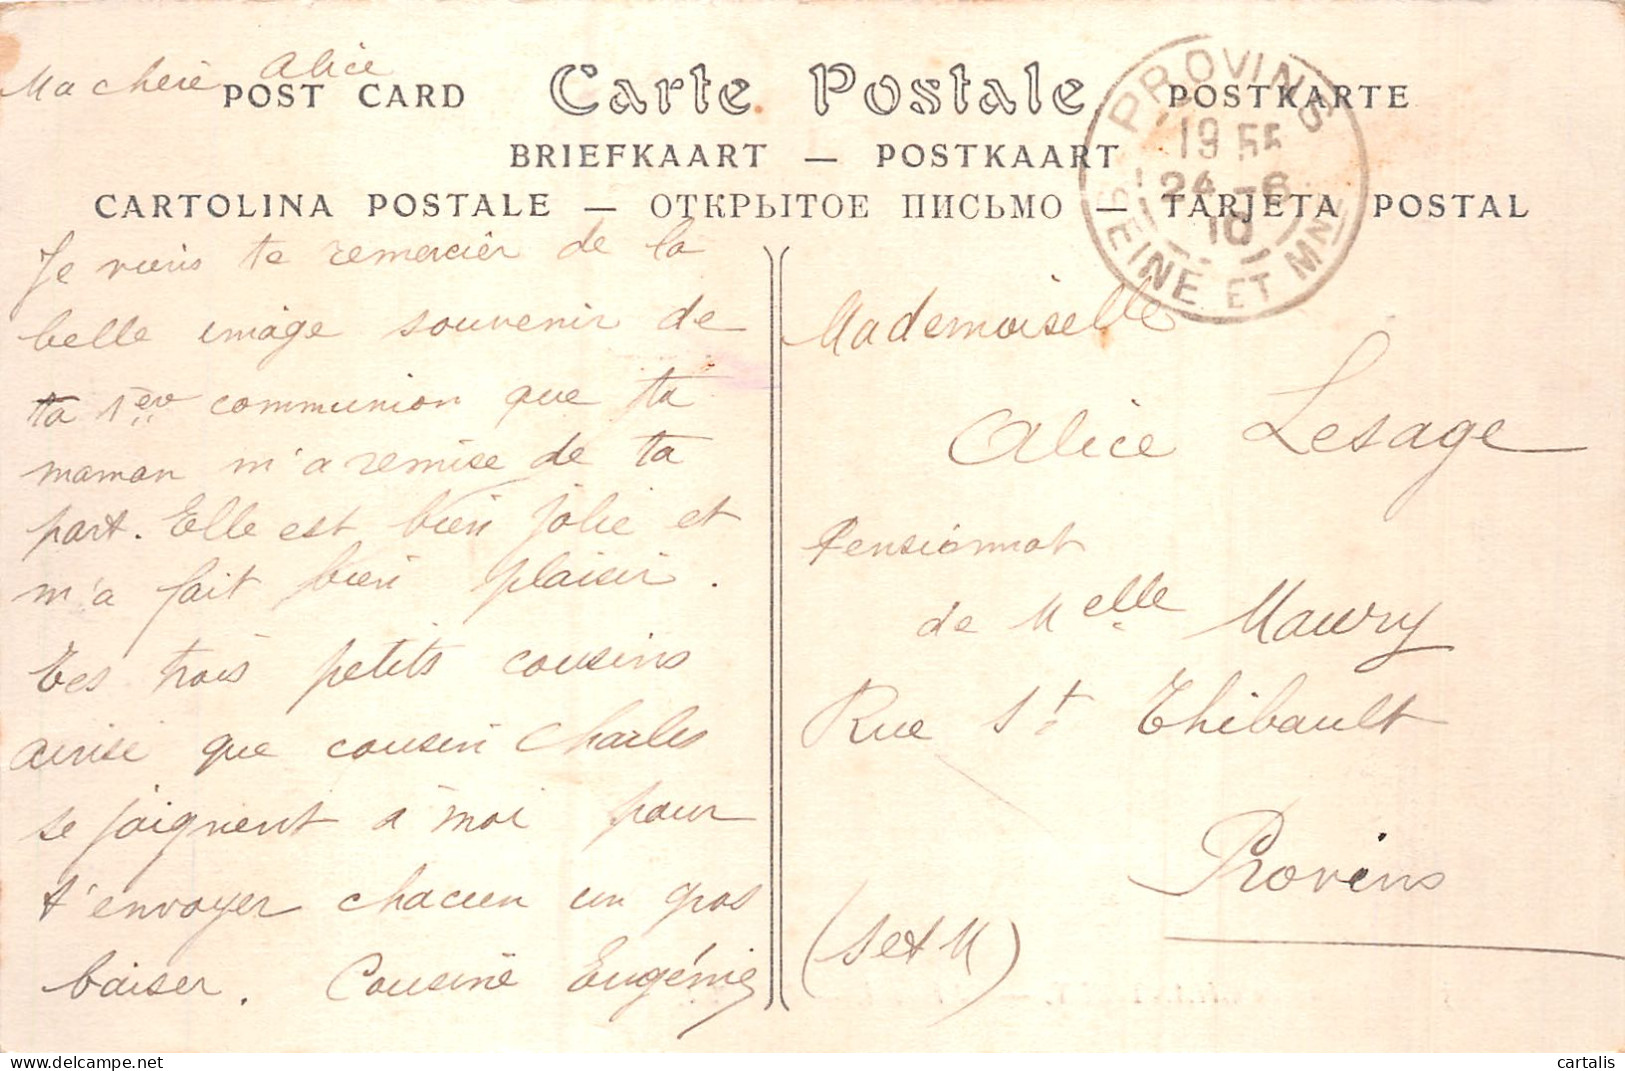 Ma chère Alice
POST CARD Carte Postale POSTKARTE
BRIEFKAART — POSTKAART
CARTOLINA POSTALE — ОТКРЫТОЕ ПИСЬМО — TARJETA POSTAL
PROVINS
19 55
24 -6
10
SEINE ET MNE
Je viens te remercier de la
belle image souvenir de
ta 1ère communion que ta
maman m'a remise de ta
part. Elle est bien jolie et
m'a fait bien plaisir.
Tes trois petits cousins
ainsi que cousin Charles
se joignent à moi pour
t'envoyer chacun un gros
baiser. Cousine Eugénie
Mademoiselle
Alice Lesage
Pensionnat
de Melle Maury
Rue St Thibault
Provins
(S et M)
cartalis